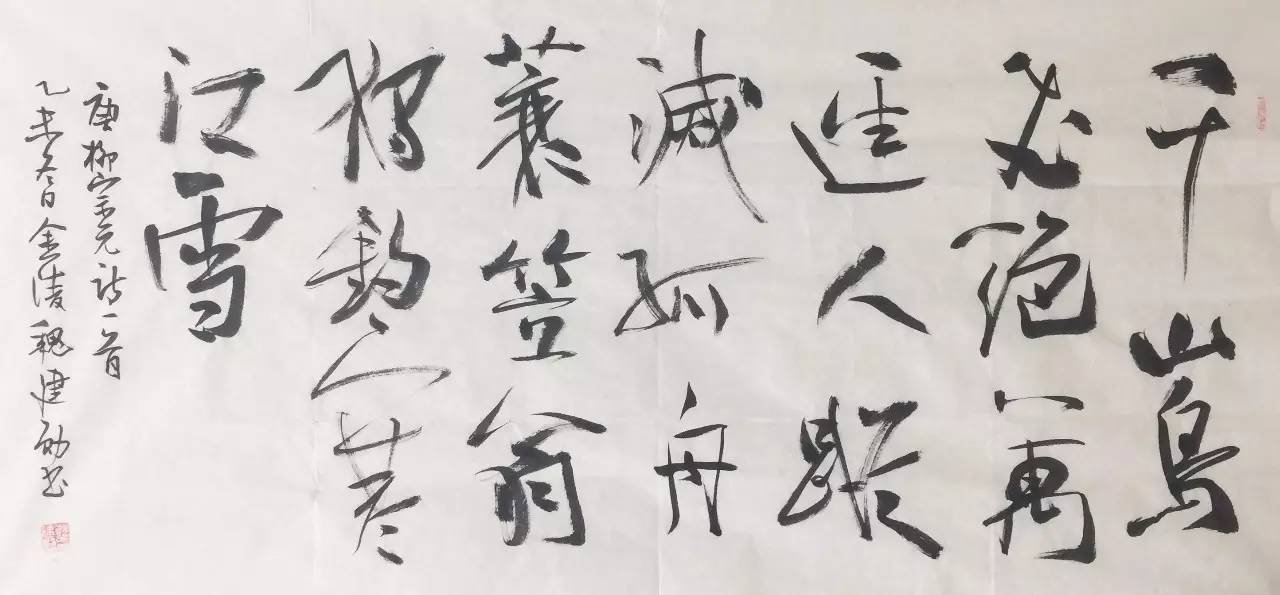 千山鳥
飛絕萬
逕人蹤
滅孤舟
蓑笠翁
獨釣寒
江雪
唐柳宗元詩一首
乙未冬日金陵魏建書